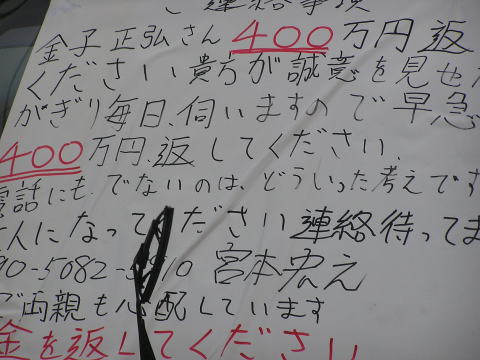 ご連絡事項
金子正弘さん400万円返
ください貴方が誠意を見せな
がぎり毎日、伺いますので早急
400万円、返してください、
電話にも、でないのは、どういった考えです
人になってください連絡待ってま
90-5082-3910 宮本宏え
ご両親も心配しています
金を返してください